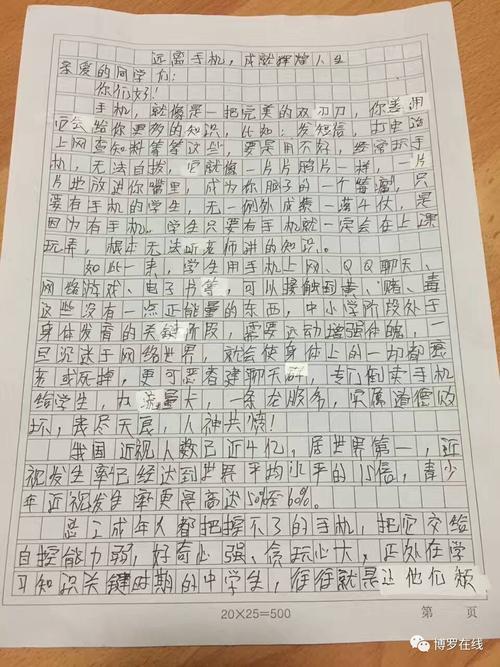 远离手机，成就辉煌人生
亲爱的同学们：
你们好！
手机，就像是一把完美的双刃刀，你善用
它会给你更多的知识，比如：发短信，打电话
上网查知料等等这些，要是用不好，经常玩手
机，无法自拔，它就像一片片鸦片一样，一片
片地放进你嘴里，成为你脑子的一个 ，只
要有手机的学生，无一例外成绩一落千仗，是
因为有手机，学生只要有手机就一定会在上课
玩弄，根本无法听老师讲的知识。
如此一来，学生用手机上网、QQ聊天、
网络游戏、电子书等，可以接触到黄、赌、毒
这些没有一点正能量的东西，中小学阶段处于
身体发育的关键阶段，需要运动增强体魄，一
旦沉迷于网络世界，就会使身体上的一切都衰
老或死掉，更可恶者建聊天群，专门倒卖手机
给学生，办流量卡，一条龙服务，实属道德败
坏，丧尽天良，人神共愤！
我国近视人数已近4亿，居世界第一，近
视发生率已经达到世界平均水平的1.5倍，青少
年近视发生率更是高达50%至60%。
总之成年人都把握不了的手机，把它交给
自控能力弱，好奇心强、贪玩心大，正处在学
习知识关键时期的中学生，往往就是让他们频
20×25=500
第 页
博罗在线